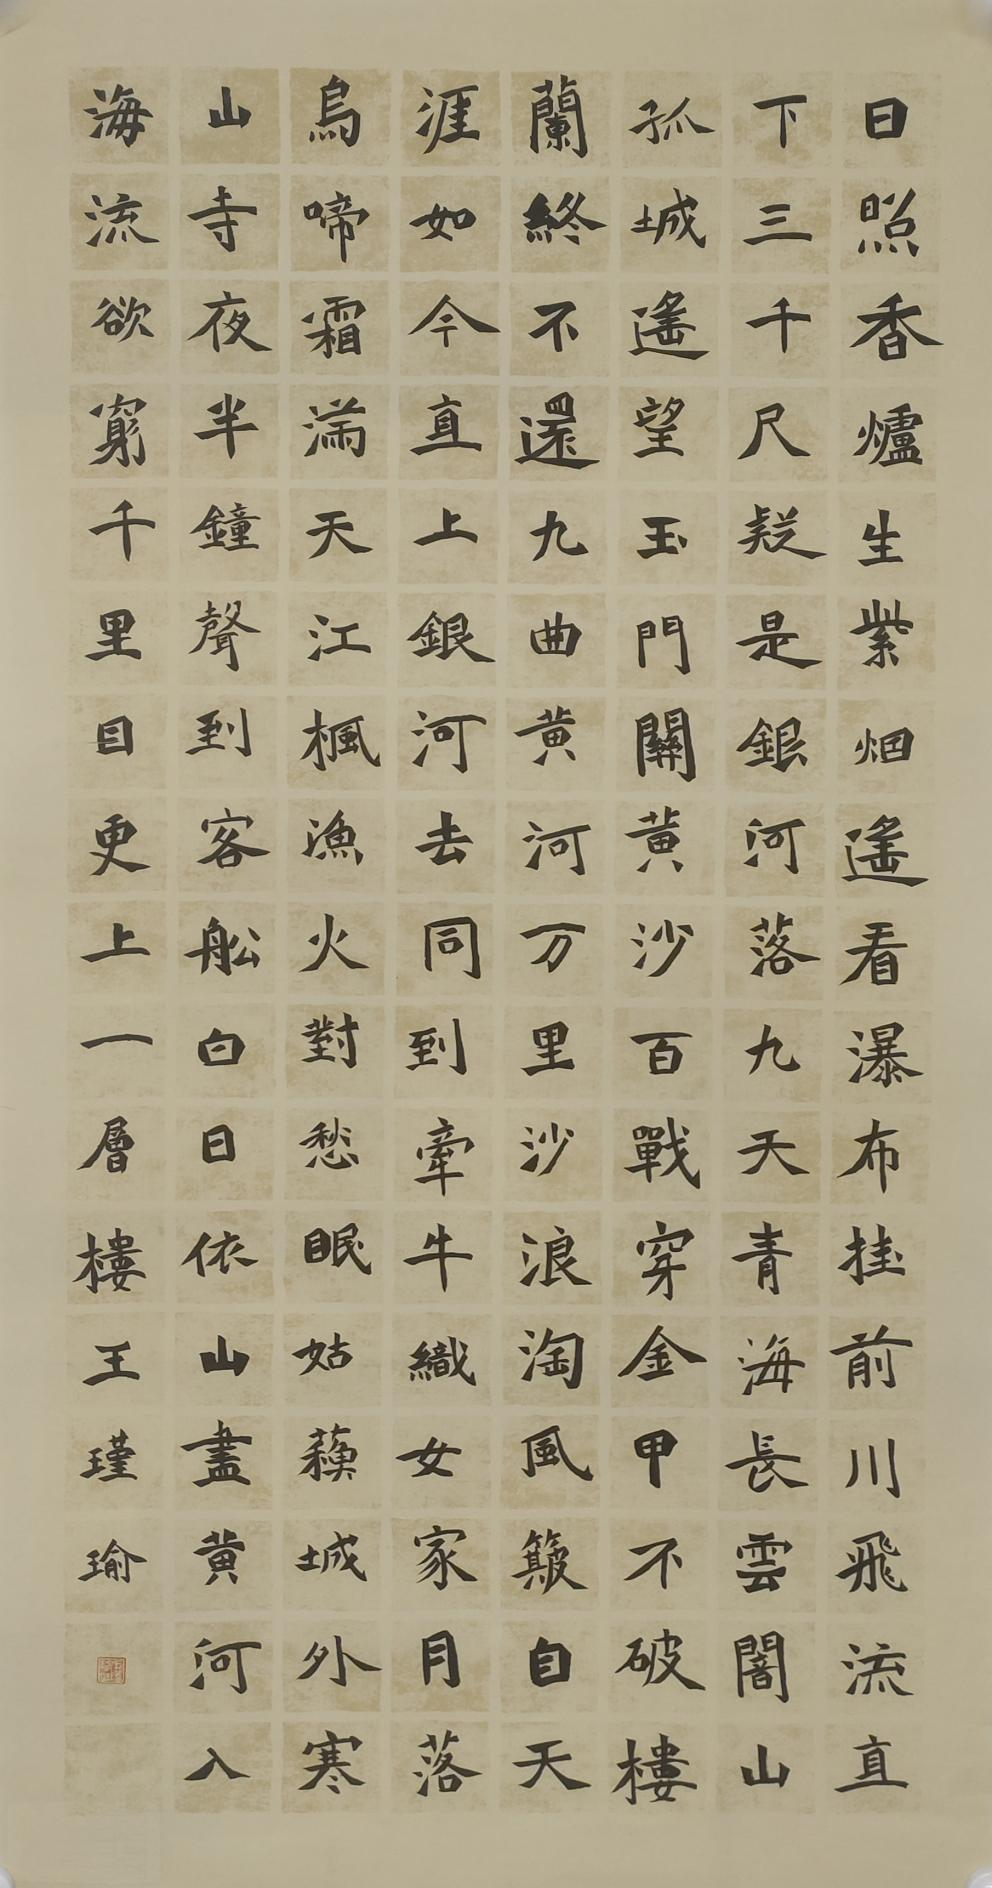 日照香爐生紫烟遙看瀑布挂前川飛流直
下三千尺疑是銀河落九天青海長雲闇山
孤城遙望玉門關黄沙百戰穿金甲不破樓
蘭終不還九曲黄河万里沙浪淘風簸自天
涯如今直上銀河去同到牽牛織女家月落
烏啼霜滿天江楓漁火對愁眠姑蘓城外寒
山寺夜半鐘聲到客船白日依山盡黄河入
海流欲窮千里目更上一層樓王瑾瑜